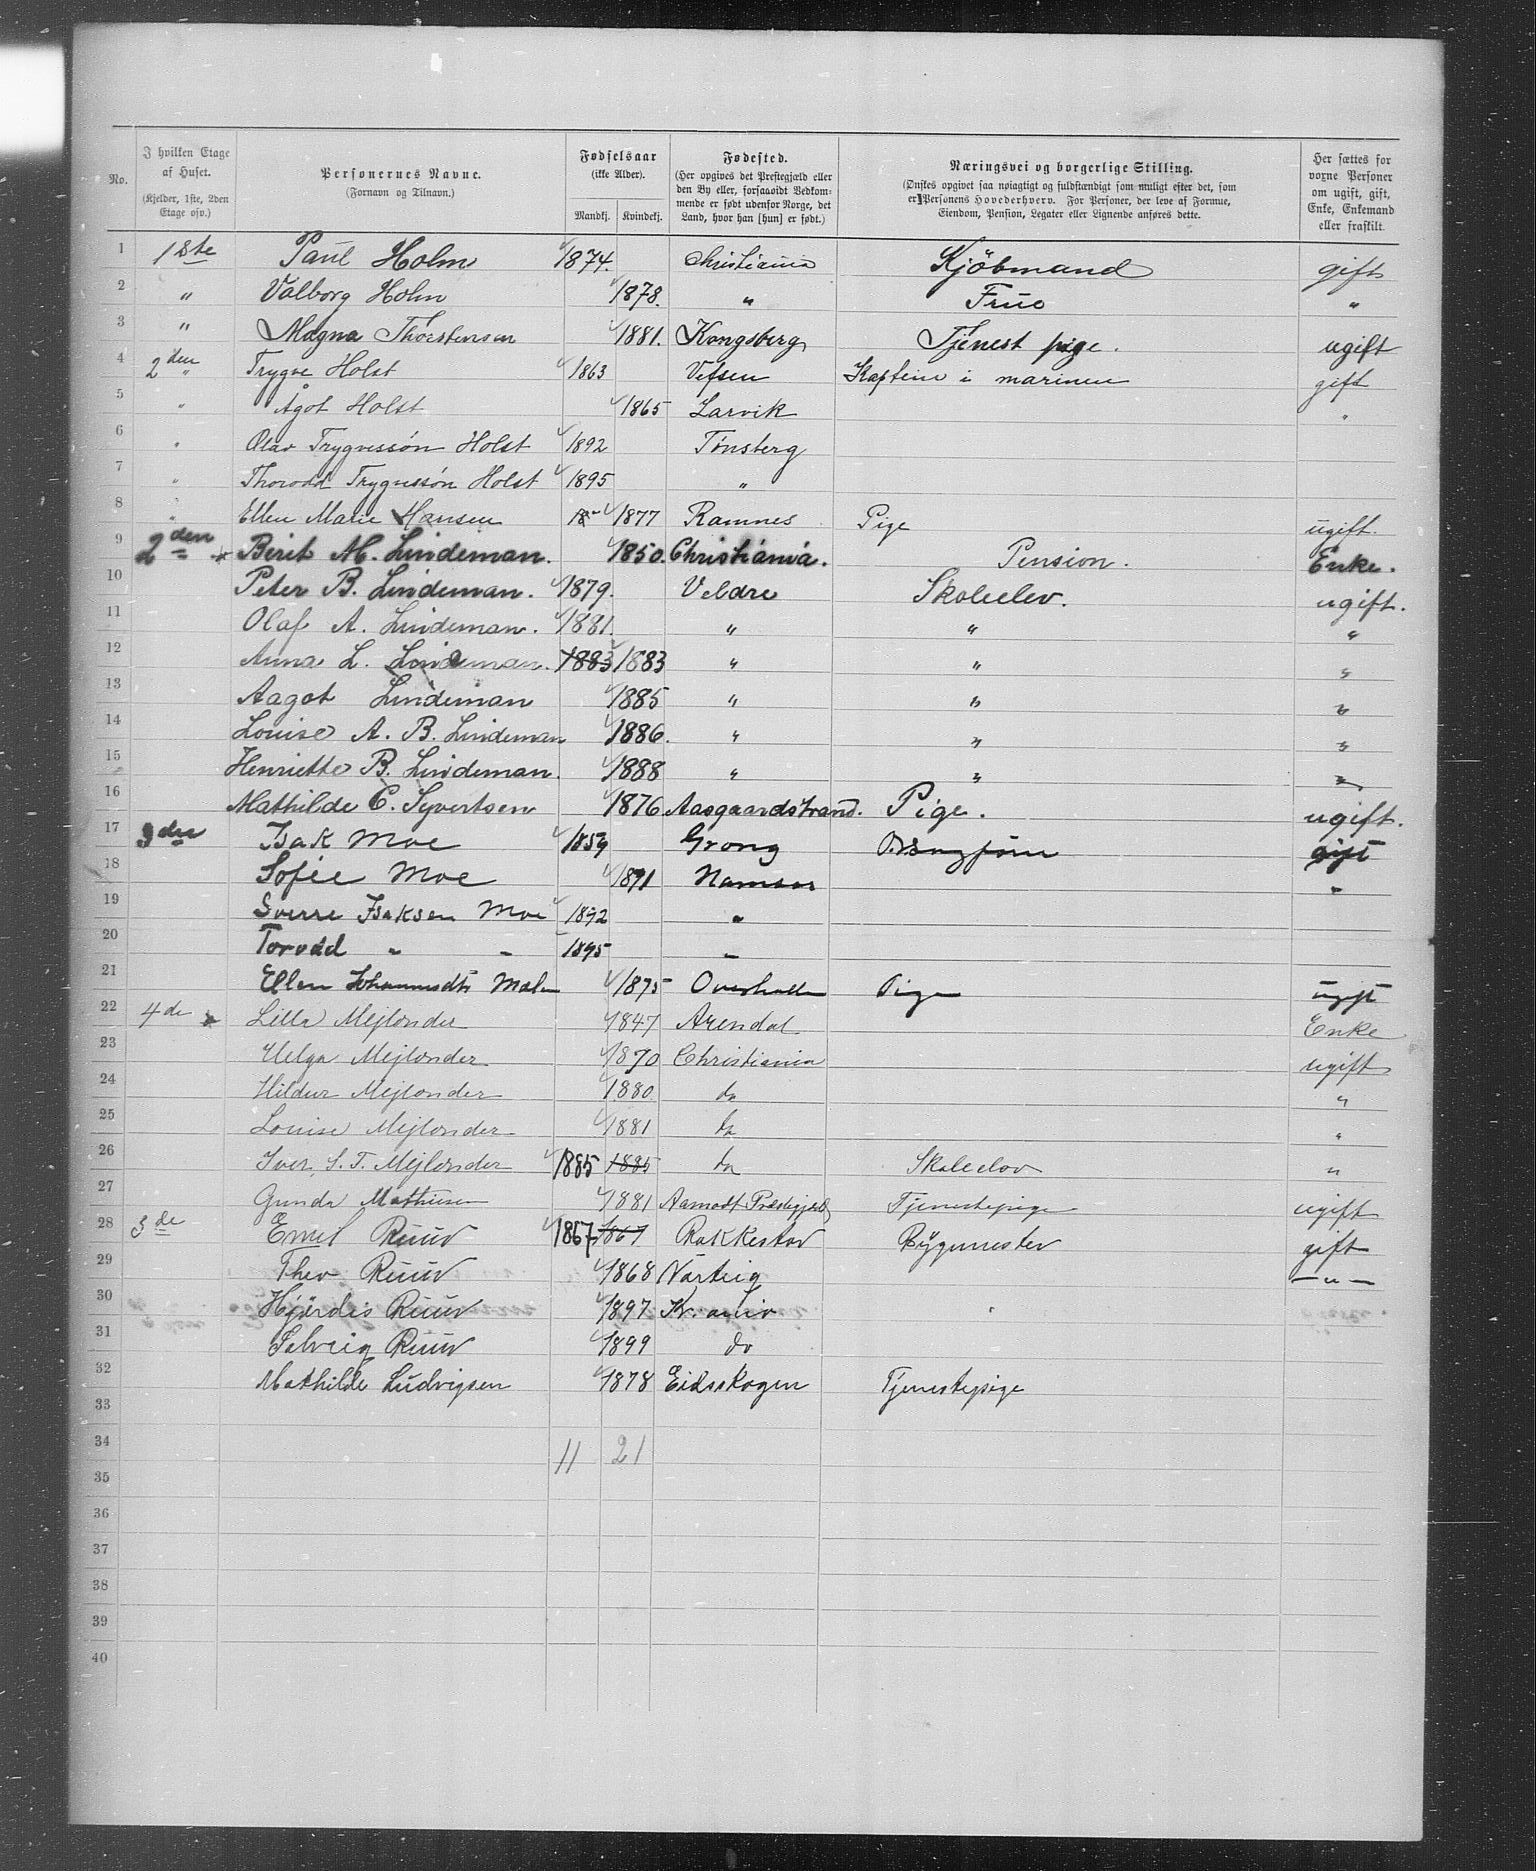 No. | I hvilken Etage af Huset. (Kjelder, 1ste, 2den Etage osv.) | Personernes Navne. (Fornavn og Tilnavn.) | Fødselsaar (ikke Alder). Mandkj. | Kvindekj. | Fødested. (Her opgives det Prestegjæld eller den By eller, forsaavidt Vedkommende er født udenfor Norge, det Land, hvor han [hun] er født.) | Næringsvei og borgerlige Stilling. (Ønskes opgivet saa nøiagtigt og fuldstændigt som muligt efter det, som er Personens Hovederhverv. For Personer, der leve af Formue, Eiendom, Pension, Legater eller Lignende anføres dette.) | Her sættes for voxne Personer om ugift, gift, Enke, Enkemand eller fraskilt.
1 1ste Paul Holm 1874. Christiania Kjöbmand gift
2 " Valborg Holm 1878. " Frue "
3 " Magna Thorstensen 1881. Kongsberg Tjenest pige. ugift
4 2den " Trygve Holst 1863 Vefsen Kaptein i marinen gift
5 " Ågot Holst 1865 Larvik "
6 " Olav Trygvessön Holst 1892 Tönsberg
7 " Thorodd Trygvessön Holst 1895 "
8 " Ellen Marie Hansen 18 1877 Ramnes Pige ugift.
9 2den Berit M. Lindeman. 1850. Christiania. Pension. Enke.
10 Peter B. Lindeman. 1879. Veldre Skoleelev. ugift.
11 Olaf A. Lindeman. 1881. " " "
12 Anna L. Lindeman. 1883 1883 " " "
13 Aagot Lindeman 1885 " " "
14 Louise A. B. Lindeman 1886. " " "
15 Henriette B. Lindeman. 1888 " " "
16 Mathilde C. Syvertsen 1876 Aasgaardstrand. Pige. ugift.
17 3die Isak Moe 1859 Grong gift
18 Sofie Moe 1891 Namsos "
19 Sverre Isaksen Moe 1892 "
20 Torodd " " 1895 "
21 Ellen 1875 Overhallen Pige ugift
22 4de Lilla Mejlænder 1847 Arendal Enke
23 Helga Mejlænder 1870 Christiania ugift
24 Hildur Mejlænder 1880 do "
25 Louise Mejlænder 1881 do "
26 Iver S. T. Mejlænder 1885 1885 do Skoleelev "
27 Gunda Mathisen 1881 Aamodt Præstegjæld Tjenestepige ugift
28 3de Emil Ruud 1867 1867 Rakkestad Bygmester gift
29 Thea Ruud 1868 Varteig — " —
30 Hjördis Ruud 1897 Kr.ania
31 Solveig Ruud 1899 do
32 Mathilde Ludvigsen 1878 Eidsskogen Tjenestepige
33
34 11 21
35
36
37
38
39
40